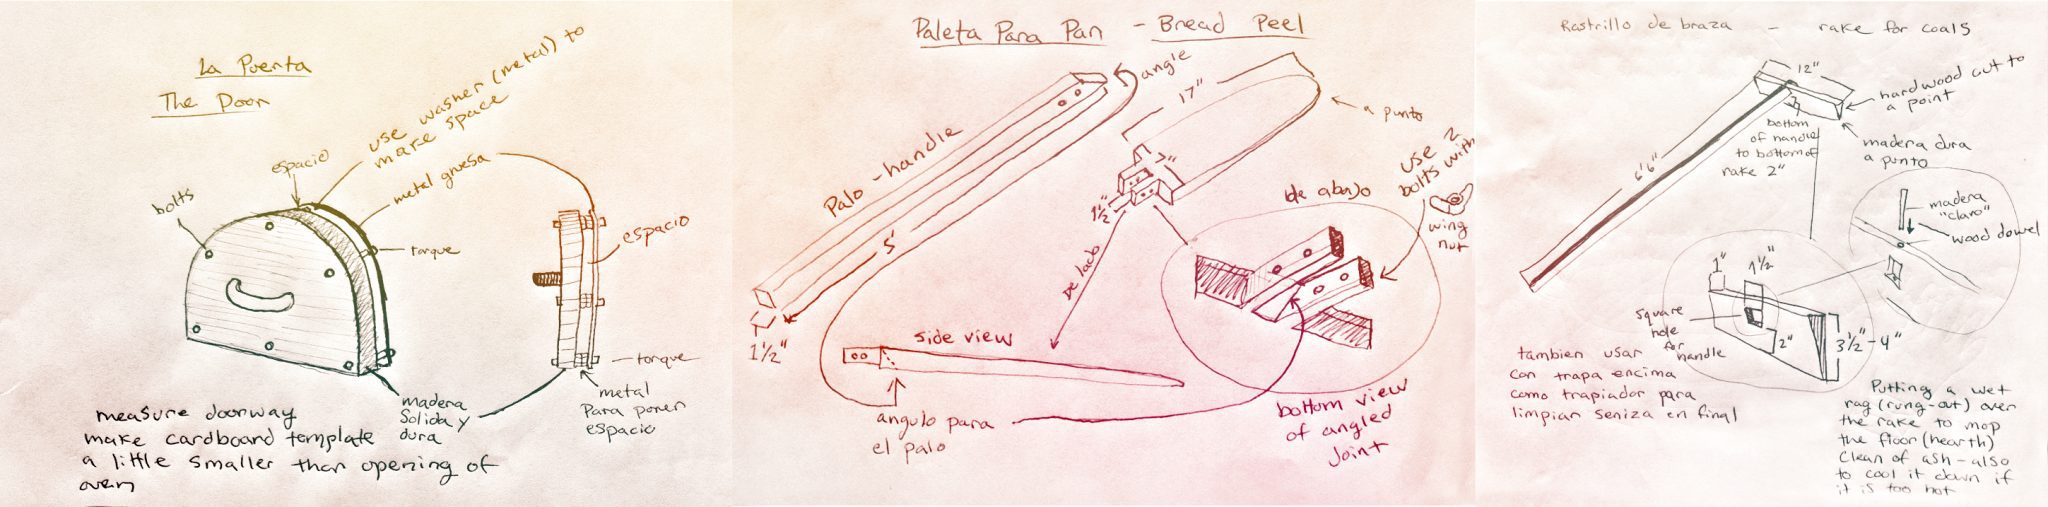 La Puerta
The Door
use washer (metal) to
make space
espacio
metal gruesa
bolts
torque
espacio
torque
madera
Solida y
dura
metal
Para poner
espacio
measure doorway
make cardboard template
a little smaller than opening of
oven
Paleta Para Pan - Bread Peel
angle
17"
a punto
Palo - handle
7"
1½"
5'
1½"
De lado
de abajo
use 2
bolts with
wing
nut
side view
angulo para
el palo
bottom view
of angled
Joint
Rastrillo de braza - rake for coals
12"
hardwood cut to
a point
bottom
of handle
to bottom of
rake 2"
madera dura
a punto
6'6"
madera
"claro"
wood dowel
1"
1½"
square
hole
for
handle
2"
3½" - 4"
tambien usar
con trapa encima
como trapiador para
limpiar seniza en final
Putting a wet
rag (rung-out) over
the rake to mop
the floor (hearth)
Clean of ash - also
to cool it down if
it is too hot